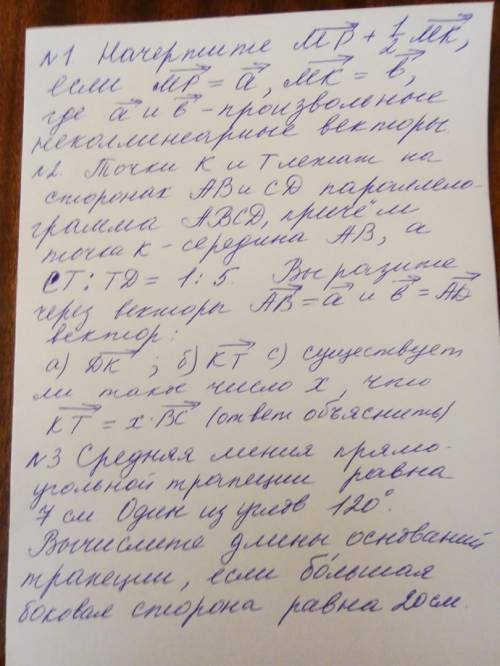 №1 Начертите MP + 1/2 MK,
если MP = a, MK = b,
где a и b - произвольные
неколлинеарные векторы.
№2. Точки K и T лежат на
сторонах AB и CD параллело-
грамма ABCD, причём
точка K - середина AB, а
CT : TD = 1 : 5. Выразите
через векторы AB = a и b = AD
вектор:
а) ДK ; б) KT с) существует
ли такое число x, что
KT = x · BC (ответ объяснить)
№3 Средняя линия прямо-
угольной трапеции равна
7 см Один из углов 120°.
Вычислите длины оснований
трапеции, если бо́льшая
боковая сторона равна 20см.